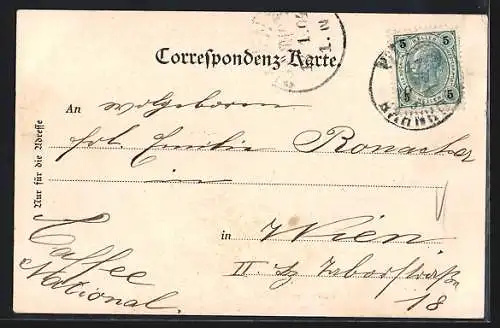 Correspondenz-Karte.
5 5
5
An wolgeboren
Frl. Emilie Ronacher
in
Nur für die Adresse
in Wien
II. Bz. Taborstraße
18
Caffee
National.